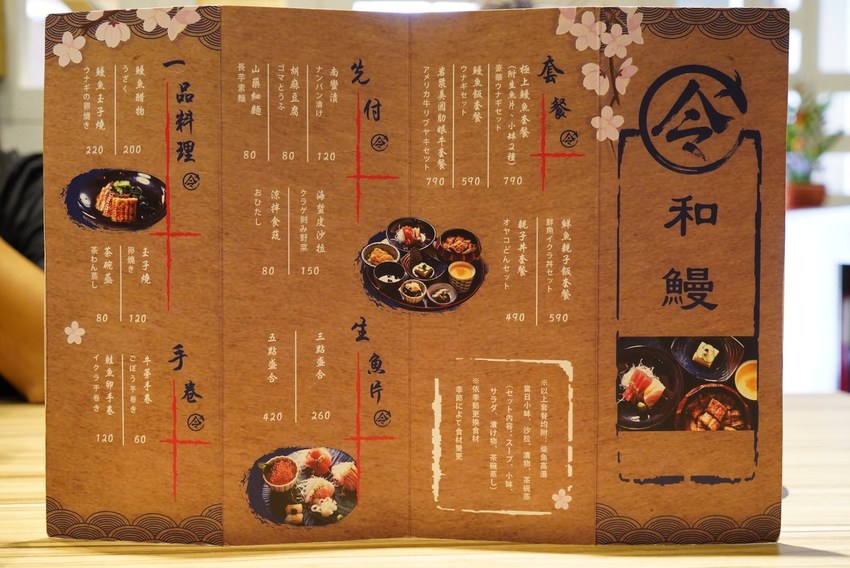 令
和
鰻
套餐
令
極上鰻魚套餐
(附生魚片、小鉢2種)
豪華ウナギセット
790
鰻魚飯套餐
ウナギセット
590
岩漿美國肋眼牛套餐
アメリカ牛リブヤキセット
790
鮮魚親子飯套餐
鮮魚イクラ丼セット
590
親子丼套餐
オヤコどんセット
490
※以上套餐均附:柴魚高湯
當日小鉢、沙拉、漬物、茶碗蒸
(セット内容:スープ、小鉢、
サラダ、漬け物、茶碗蒸し)
※依季節更換食材
季節によて食材變更
先付
令
南蠻漬
ナンバン漬け
120
胡麻豆腐
ゴマとうふ
80
山藥細麵
長芋素麵
80
海蜇皮沙拉
クラゲ刻み野菜
150
涼拌食蔬
おひたし
80
生魚片
令
三點盛合
260
五點盛合
420
一品料理
令
鰻魚醋物
うざく
200
鰻魚玉子燒
ウナギの卵燒き
220
玉子燒
卵燒き
120
茶碗蒸
茶わん蒸し
80
手卷
令
牛蒡手卷
ごぼう手巻き
60
鮭魚卵手卷
イクラ手巻き
120